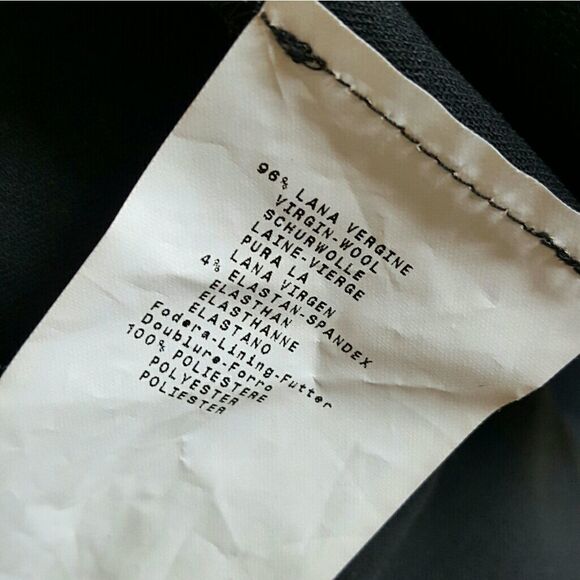 96% LANA VERGINE
VIRGIN-WOOL
SCHURWOLLE
LAINE-VIERGE
PURA LA
LANA VIRGEN
4% ELASTAN-SPANDEX
ELASTHAN
ELASTHANNE
ELASTANO
Fodera-Lining-Futter
Doublure-Forro
100% POLIESTERE
POLYESTER
POLIESTER